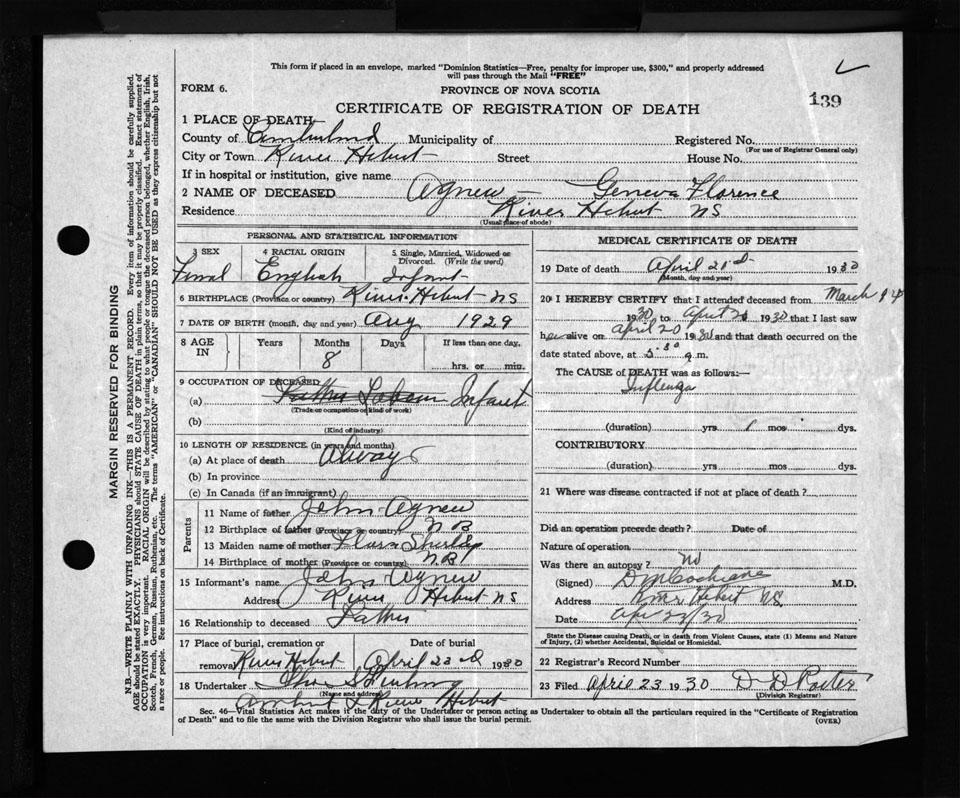 This form if placed in an envelope, marked "Dominion Statistics—Free, penalty for improper use, $300," and properly addressed
will pass through the Mail "FREE"
FORM 6.
PROVINCE OF NOVA SCOTIA
139
CERTIFICATE OF REGISTRATION OF DEATH
1 PLACE OF DEATH
County of Cumberland Municipality of Registered No.
(For use of Registrar General only)
City or Town River Hebert Street House No.
If in hospital or institution, give name
2 NAME OF DECEASED Agnew — Geneva Florence
Residence River Hebert NS
(Usual place of abode)
PERSONAL AND STATISTICAL INFORMATION
3 SEX 4 RACIAL ORIGIN 5 Single, Married, Widowed or Divorced. (Write the word)
Femal English Infant
6 BIRTHPLACE (Province or country) River Hebert NS
7 DATE OF BIRTH (month, day and year) Aug 1929
8 AGE IN Years Months Days If less than one day.
8 hrs. or min.
9 OCCUPATION OF DECEASED
(a) Father Labour Infant
(Trade or occupation or kind of work)
(b)
(Kind of industry)
10 LENGTH OF RESIDENCE (in years and months)
(a) At place of death Always
(b) In province
(c) In Canada (if an immigrant)
Parents
11 Name of father John Agnew
12 Birthplace of father (Province or country) N B
13 Maiden name of mother Shirley
14 Birthplace of mother (Province or country) N.B
15 Informant's name John Agnew
Address River Hebert NS
16 Relationship to deceased Father
17 Place of burial, cremation or Date of burial
removal River Hebert April 23rd 1930
18 Undertaker
(Name and address)
Amherst & River Hebert
MEDICAL CERTIFICATE OF DEATH
19 Date of death April 21st 1930
(Month, day and year)
20 I HEREBY CERTIFY that I attended deceased from March
1930 to April 1930 that I last saw
her alive on April 20 1930 and that death occurred on the
date stated above, at 5.30 a.m.
The CAUSE of DEATH was as follows:—
Influenza
(duration) yrs 1 mos dys.
CONTRIBUTORY
(duration) yrs mos dys.
21 Where was disease contracted if not at place of death?
Did an operation precede death? Date of
Nature of operation
Was there an autopsy? No
(Signed) D M Cochrane M.D.
Address River Hebert NS
Date Apr 23/30
State the Disease causing Death, or in death from Violent Causes, state (1) Means and Nature
of Injury, (2) whether Accidental, Suicidal or Homicidal.
22 Registrar's Record Number
23 Filed April 23 1930 D D Porter
(Division Registrar)
Sec. 46—Vital Statistics Act makes it the duty of the Undertaker or person acting as Undertaker to obtain all the particulars required in the "Certificate of Registration
of Death" and to file the same with the Division Registrar who shall issue the burial permit.
(OVER)
MARGIN RESERVED FOR BINDING
N.B.—WRITE PLAINLY WITH UNFADING INK—THIS IS A PERMANENT RECORD. Every item of information should be carefully supplied.
AGE should be stated EXACTLY. PHYSICIANS should STATE CAUSE OF DEATH in plain terms, so that it may be properly classified. Exact statement of
OCCUPATION is very important. RACIAL ORIGIN will be described by stating to what people or tongue the deceased person belonged, whether English, Irish,
Scotch, French, German, Russian, Ruthenian, etc. The terms "AMERICAN" or "CANADIAN" SHOULD NOT BE USED as they express citizenship but not
a race or people. See instructions on back of Certificate.